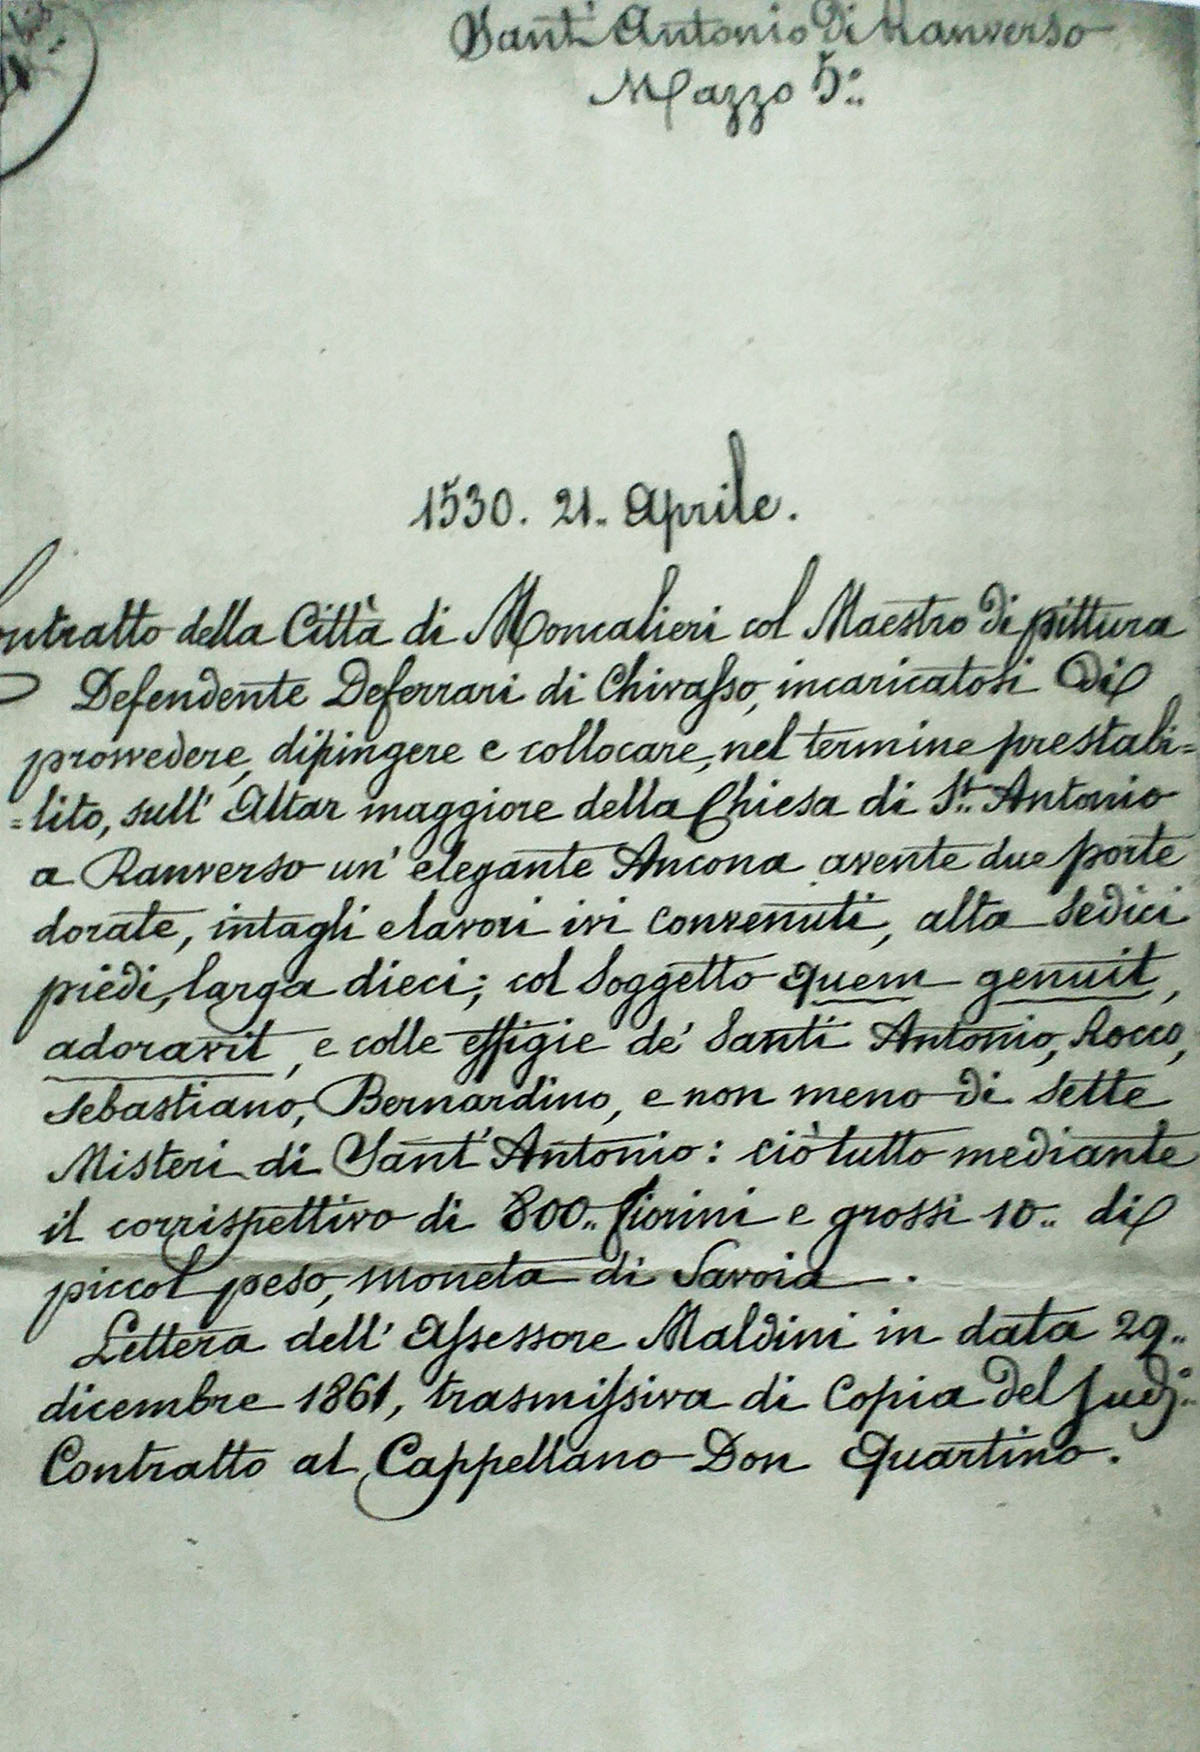 Sant' Antonio di Ranverso
Mazzo 5:
1530. 21.. Aprile.
Contratto della Città di Moncalieri col Maestro di pittura
Defendente Deferrari di Chivasso, incaricatosi di
provvedere, dipingere e collocare, nel termine prestabi=
=lito, sull' Altar maggiore della Chiesa di St. Antonio
a Ranverso un' elegante Ancona avente due porte
dorate, intagli e lavori ivi convenuti, alta sedici
piedi, larga dieci; col soggetto quem genuit,
adoravit, e colle effigie de' Santi Antonio, Rocco,
Sebastiano, Bernardino, e non meno di sette
Misteri di Sant' Antonio: ciò tutto mediante
il corrispettivo di 800.. fiorini e grossi 10.. di
piccol peso, moneta di Savoia.
Lettera dell' Assessore Maldini in data 29..
dicembre 1861, trasmissiva di Copia del sud:
Contratto al Cappellano Don Quartino.